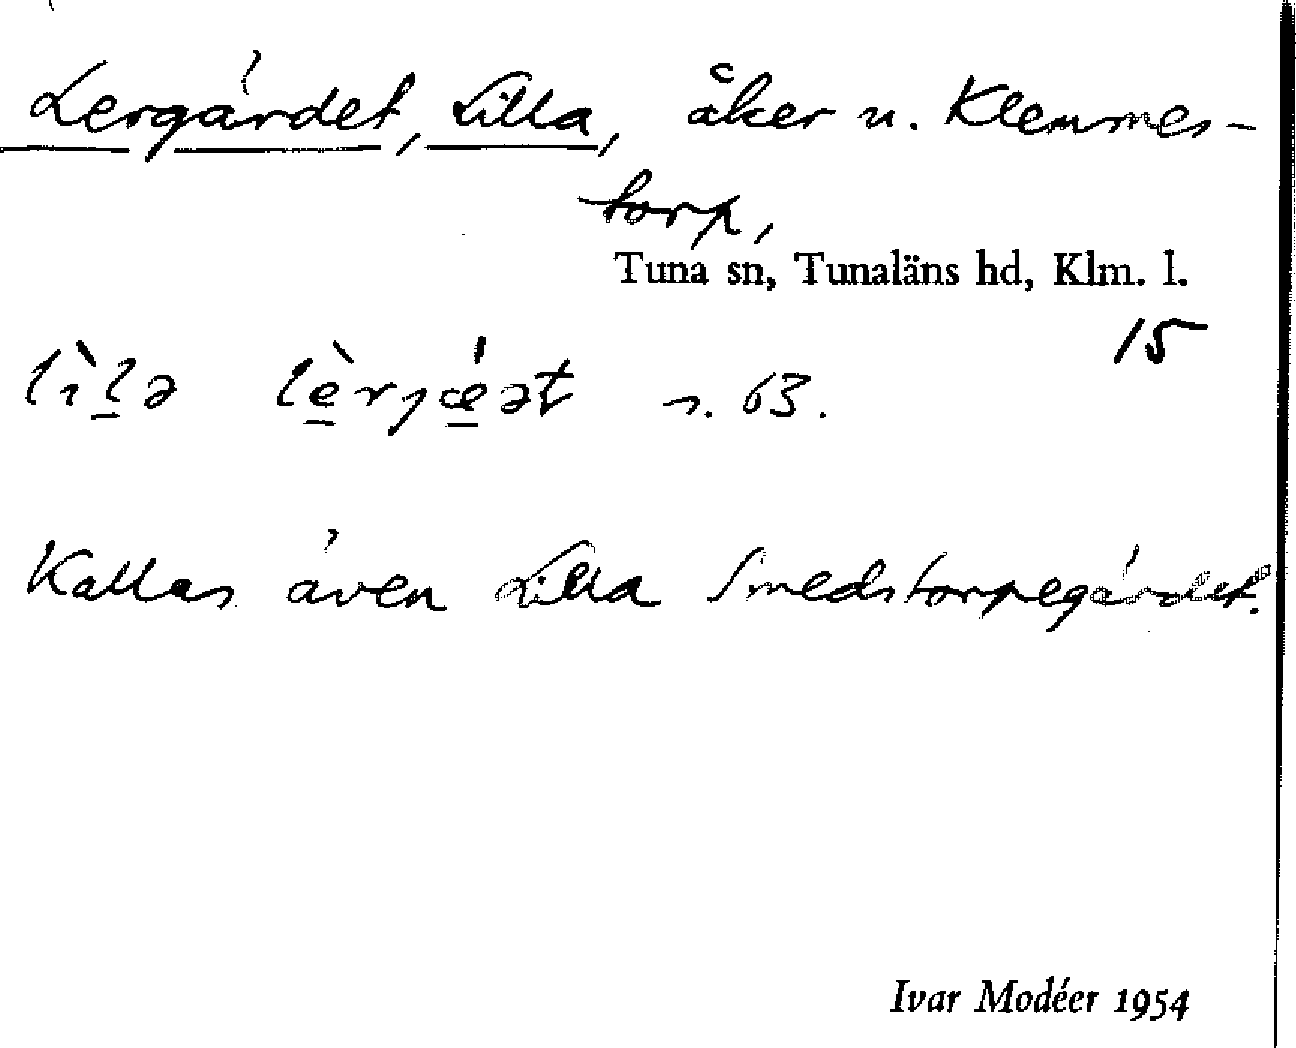 Lergärdet, Lilla, åker u. Klemmes-
torp,
Tuna sn, Tunaläns hd, Klm. l.
15
lìlə lèrjǽət s. 63.
Kallas även Lilla Smedstorpegärdet.
Ivar Modéer 1954